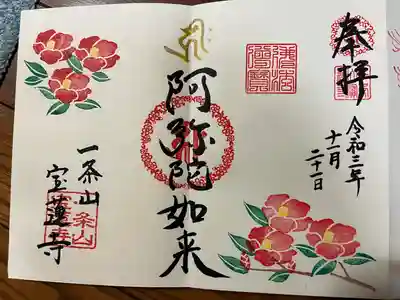 奉拝
令和三年
十一月
二十一日
阿弥陀如来
一条山
宝蓮寺
佛法僧寶
一条山